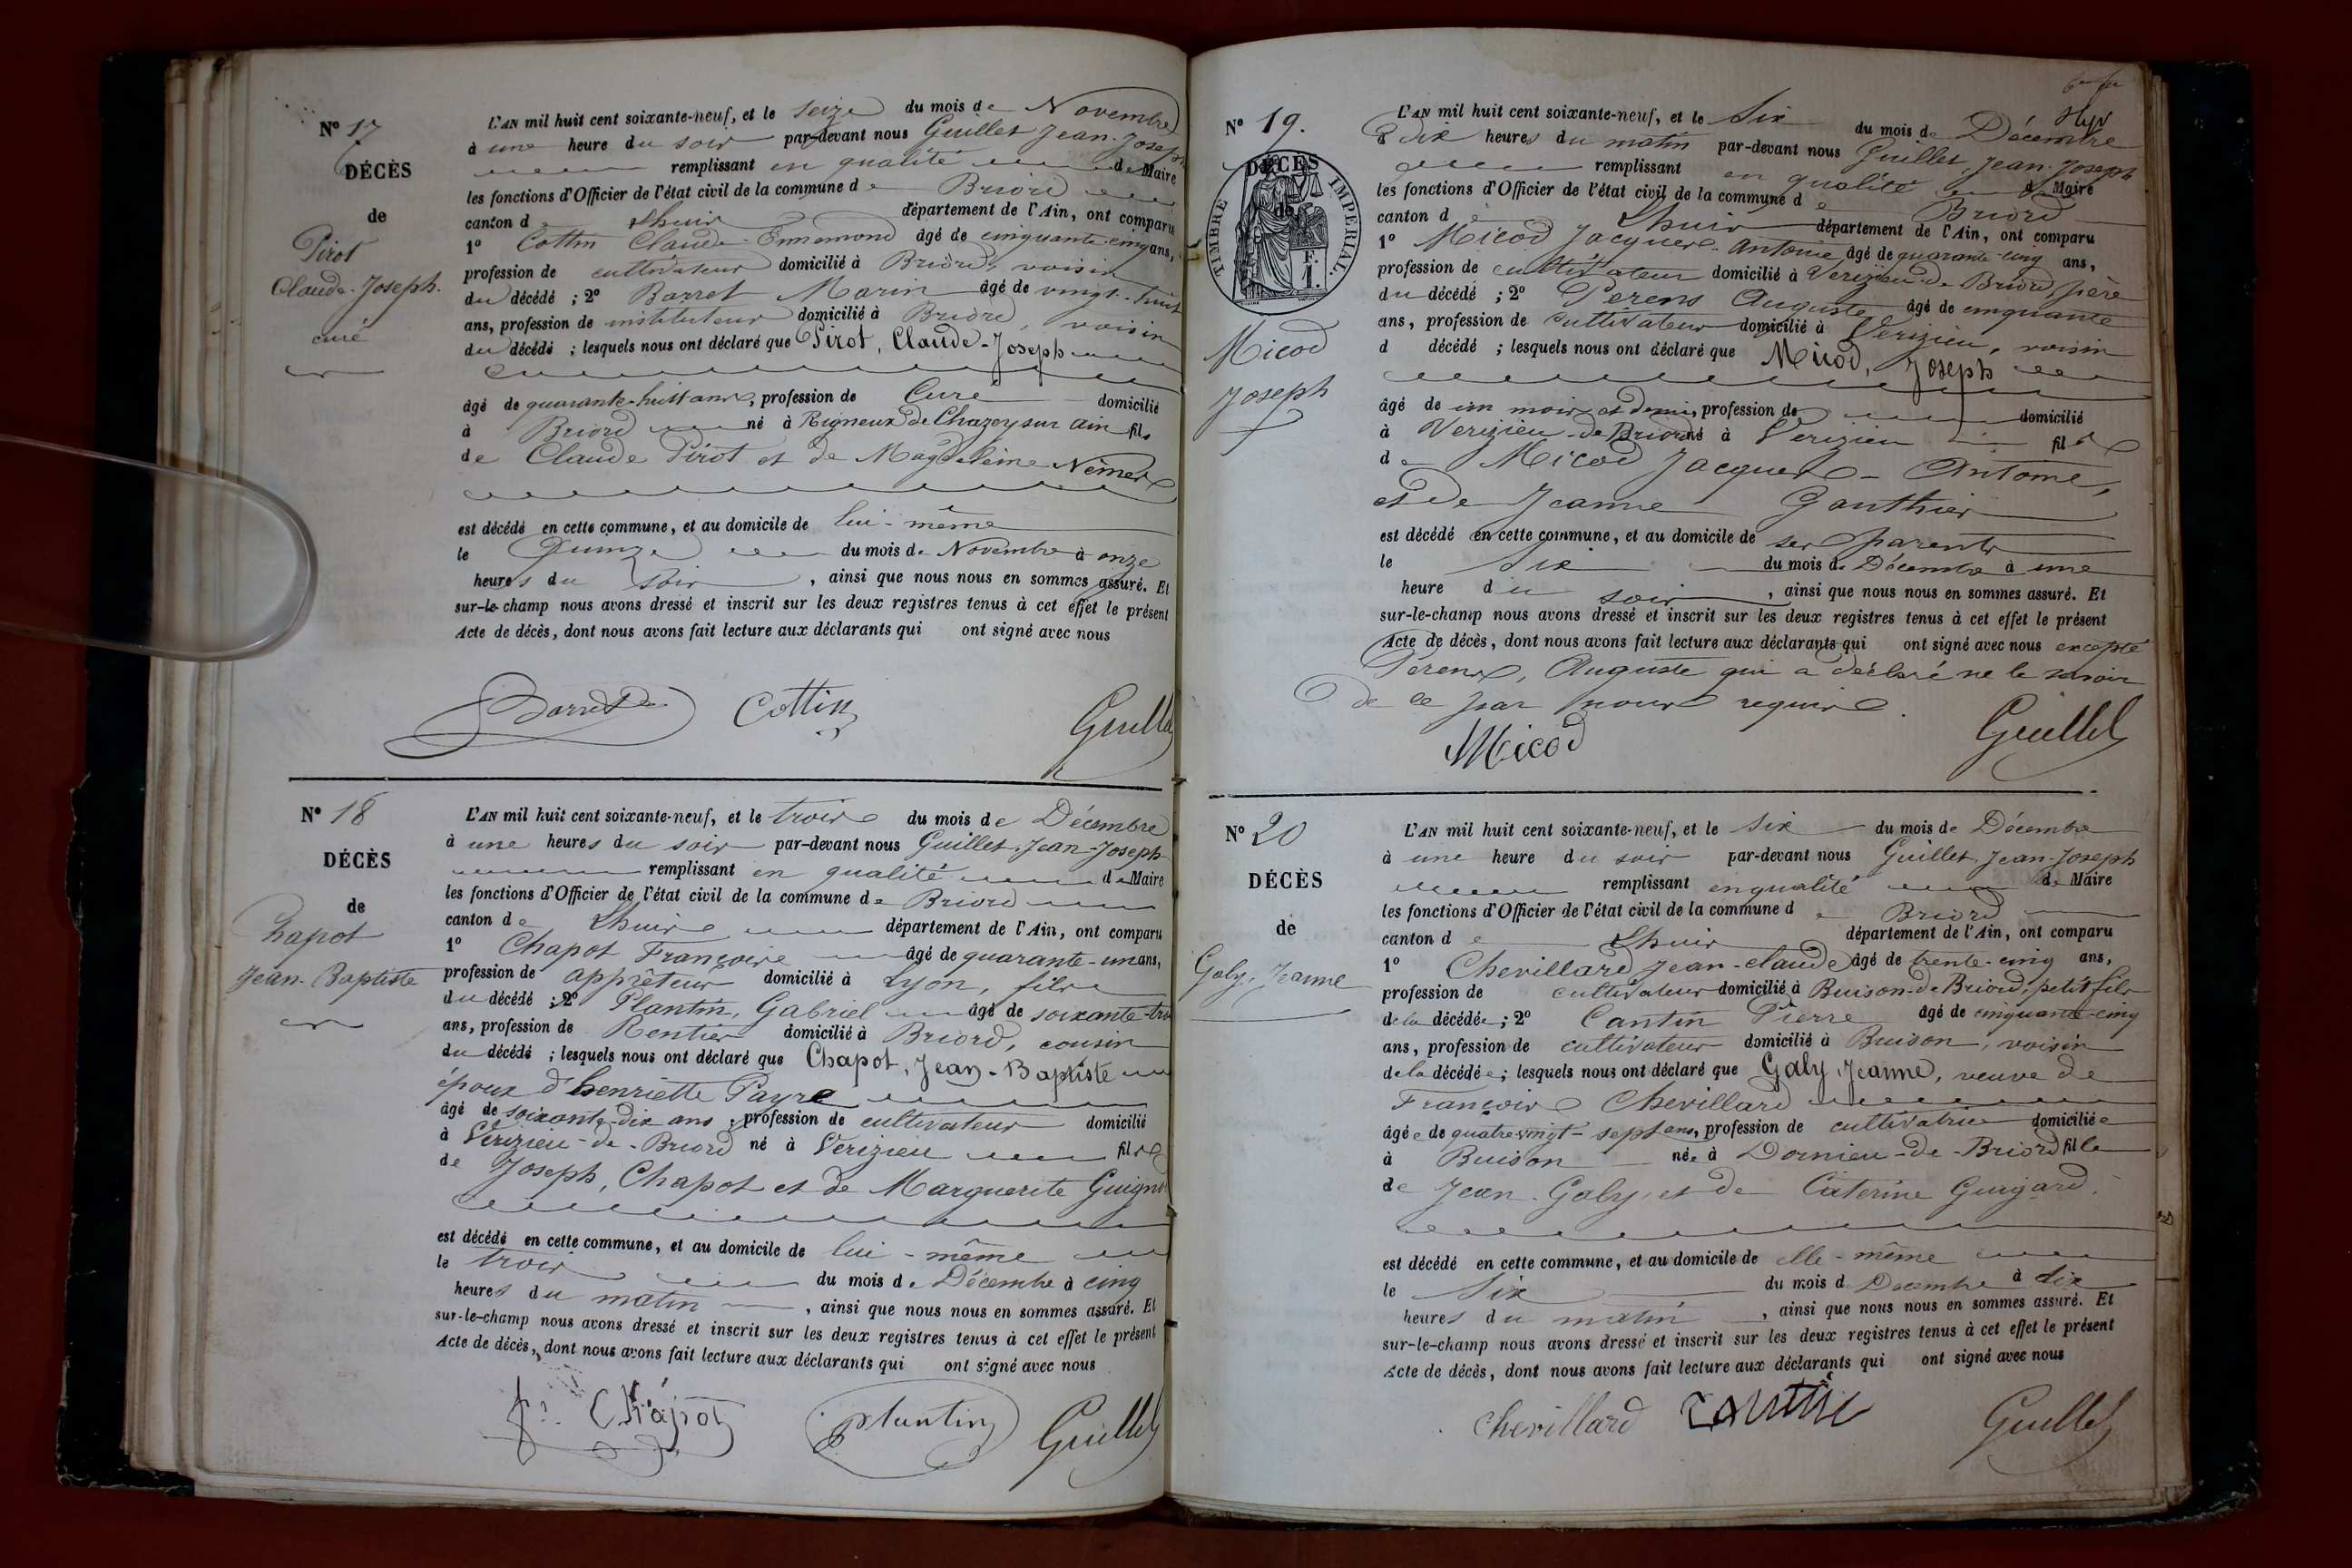 N° 17
DÉCÈS
de
Pirot
Claude-Joseph.
curé
L'AN mil huit cent soixante-neuf, et le seize du mois de Novembre
à une heure du soir par-devant nous Guillet Jean-Joseph
remplissant en qualité de Maire
les fonctions d'Officier de l'état civil de la commune de Briord
canton de Lhuis département de l'Ain, ont comparu
1° Cottin Claude-Ennemond âgé de cinquante-cinq ans,
profession de cultivateur domicilié à Briord, voisin
du décédé ; 2° Barret Marin âgé de vingt-huit
ans, profession de instituteur domicilié à Briord, voisin
du décédé ; lesquels nous ont déclaré que Pirot, Claude-Joseph
âgé de quarante-huit ans, profession de Curé domicilié
à Briord né à Rigneux de Chazey sur ain fils
de Claude Pirot et de Magdeleine
est décédé en cette commune, et au domicile de lui-même
le Quinze du mois de Novembre à onze
heures du soir, ainsi que nous nous en sommes assuré. Et
sur-le-champ nous avons dressé et inscrit sur les deux registres tenus à cet effet le présent
Acte de décès, dont nous avons fait lecture aux déclarants qui ont signé avec nous
Barret Cottin Guillet
N° 18
DÉCÈS
de
Chapot
Jean-Baptiste
L'AN mil huit cent soixante-neuf, et le trois du mois de Décembre
à une heures du soir par-devant nous Guillet, Jean-Joseph
remplissant en qualité de Maire
les fonctions d'Officier de l'état civil de la commune de Briord
canton de Lhuis département de l'Ain, ont comparu
1° Chapot François âgé de quarante-un ans,
profession de apprêteur domicilié à Lyon, fils
du décédé ; 2° Plantin, Gabriel âgé de soixante-tro
ans, profession de Rentier domicilié à Briord, cousin
du décédé ; lesquels nous ont déclaré que Chapot, Jean-Baptiste
époux d'henriette Payre
âgé de soixante-dix ans, profession de cultivateur domicilié
à Vérizieu-de-Briord né à Vérizieu fils
de Joseph, Chapot et de Marguerite
est décédé en cette commune, et au domicile de lui-même
le trois du mois de Décembre à cinq
heures du matin, ainsi que nous nous en sommes assuré. Et
sur-le-champ nous avons dressé et inscrit sur les deux registres tenus à cet effet le présent
Acte de décès, dont nous avons fait lecture aux déclarants qui ont signé avec nous
Chapot Plantin Guillet
N° 19.
DÉCÈS
de
TIMBRE IMPERIAL
F.
1.
Micod
Joseph
L'AN mil huit cent soixante-neuf, et le Six du mois de Décembre
à dix heures du matin par-devant nous Guillet, Jean-Joseph
remplissant en qualité d Maire
les fonctions d'Officier de l'état civil de la commune de Briord
canton de Lhuis département de l'Ain, ont comparu
1° Micod Jacques-Antoine âgé de quarante-cinq ans,
profession de cultivateur domicilié à Verizieu-de Briord, père
du décédé ; 2° Perens Auguste âgé de cinquante
ans, profession de cultivateur domicilié à Verizieu, voisin
d décédé ; lesquels nous ont déclaré que Micod, Joseph
âgé de un mois et demi, profession de domicilié
à Verizieu-de-Briord né à Verizieu fils
de Micod Jacques-Antoine,
et de Jeanne Gauthier
est décédé en cette commune, et au domicile de ses parents
le Six du mois de Décembre à une
heure du soir, ainsi que nous nous en sommes assuré. Et
sur-le-champ nous avons dressé et inscrit sur les deux registres tenus à cet effet le présent
Acte de décès, dont nous avons fait lecture aux déclarants qui ont signé avec nous excepté
Perens, Auguste qui a déclaré ne le savoir
de ce par nous requis.
Micod Guillet
N° 20
DÉCÈS
de
Galy, Jeanne
L'AN mil huit cent soixante-neuf, et le Six du mois de Décembre
à une heure du soir par-devant nous Guillet, Jean-Joseph
remplissant en qualité de Maire
les fonctions d'Officier de l'état civil de la commune de Briord
canton de Lhuis département de l'Ain, ont comparu
1° Chevillard Jean-claude âgé de trente-cinq ans,
profession de cultivateur domicilié à Buison-de Briord, petit fils
de la décédée ; 2° Cantin Pierre âgé de cinquante-cinq
ans, profession de cultivateur domicilié à Buison, voisin
de la décédée ; lesquels nous ont déclaré que Galy, Jeanne, veuve de
François Chevillard
âgée de quatre-vingt-sept ans, profession de cultivatrice domiciliée
à Buison née à Dornieu-de-Briord fille
de Jean Galy et de Caterine Guigard.
est décédé en cette commune, et au domicile de elle-même
le Six du mois d Décembre à dix
heures du matin, ainsi que nous nous en sommes assuré. Et
sur-le-champ nous avons dressé et inscrit sur les deux registres tenus à cet effet le présent
Acte de décès, dont nous avons fait lecture aux déclarants qui ont signé avec nous
Chevillard Cantin Guillet